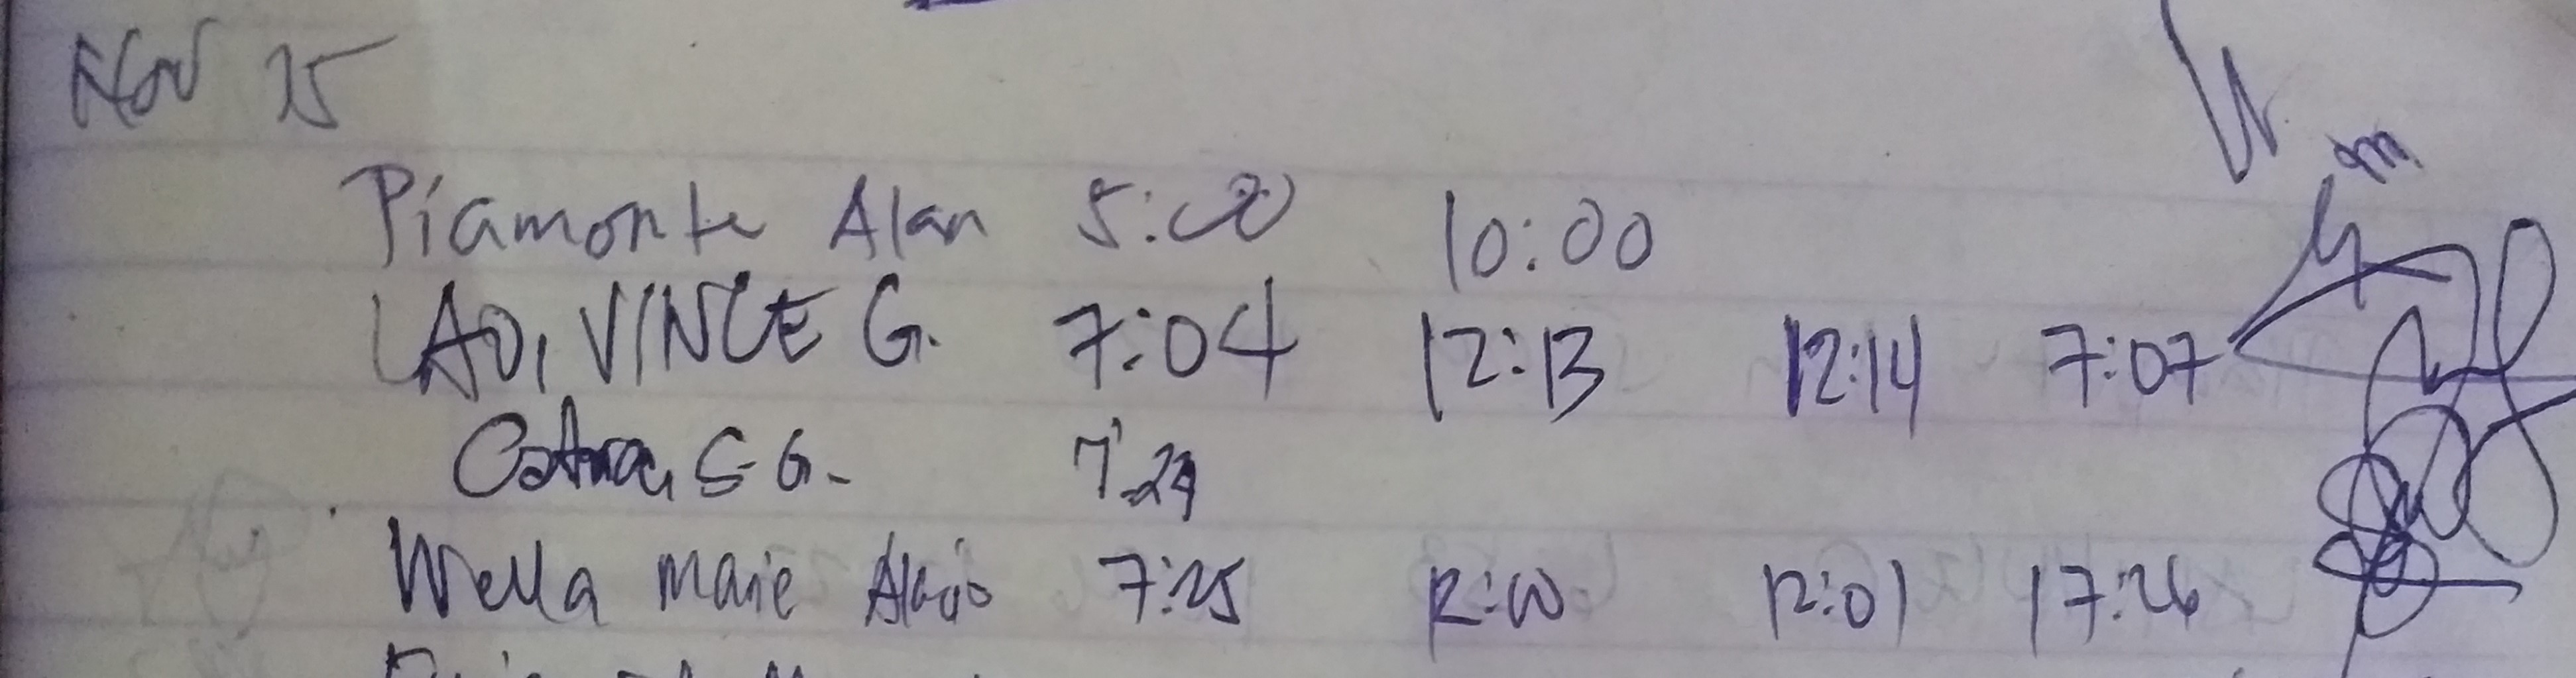 Nov 25
Piamonte Alan 5:00 10:00
LAO, VINCE G. 7:04 12:13 12:14 7:07
S G. 7:29
Wella Marie 7:25 12:00 12:01 17:26